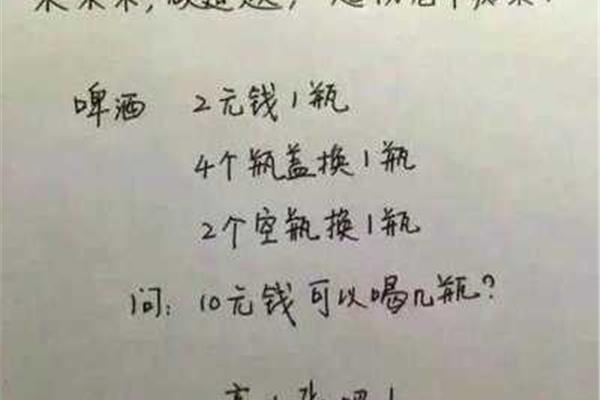 啤酒 2元钱1瓶
4个瓶盖换1瓶
2个空瓶换1瓶
问: 10元钱可以喝几瓶?